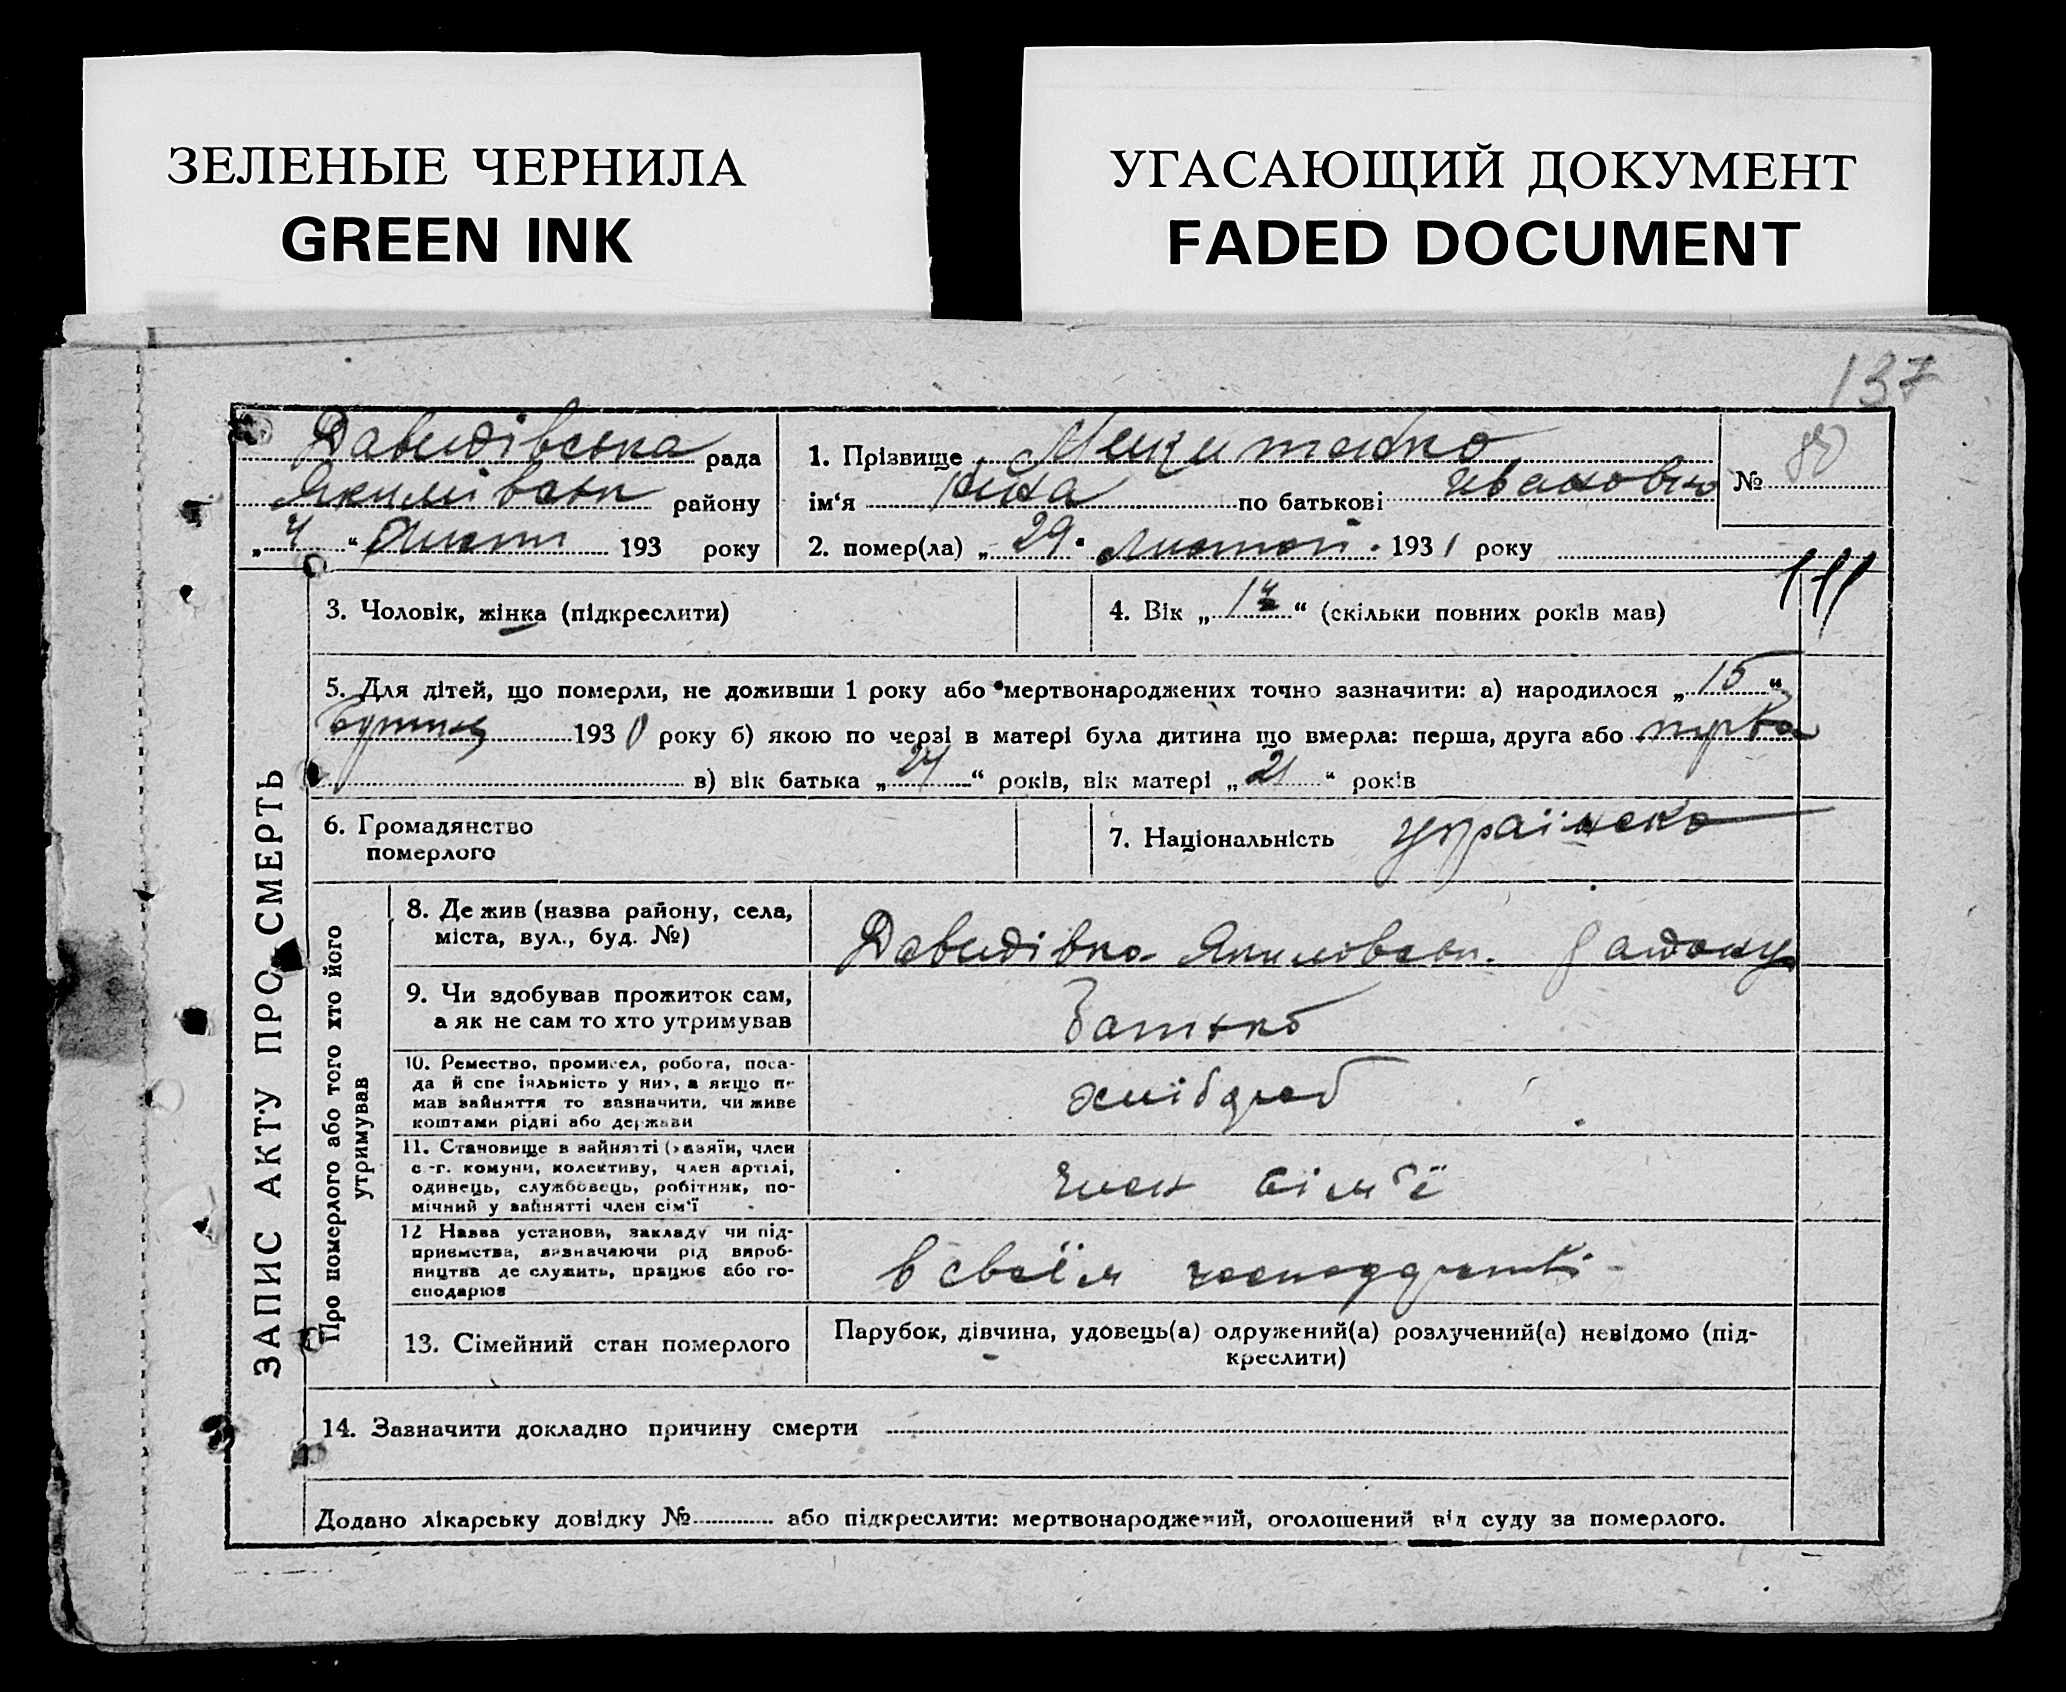 ЗЕЛЕНЫЕ ЧЕРНИЛА
GREEN INK
УГАСАЮЩИЙ ДОКУМЕНТ
FADED DOCUMENT
137
Давидівська рада
Якимівськ району
„ 4 “ 193 року
1. Прізвище
ім‘я по батькові Івановна
2. помер(ла) „ 29 “ 193 1 року
№ 80
ЗАПИС АКТУ ПРО СМЕРТЬ
3. Чоловік, жінка (підкреслити)
4. Вік „ “ (скільки повних років мав)
5. Для дітей, що померли, не доживши 1 року або мертвонароджених точно зазначити: а) народилося „ 15 “
193 0 року б) якою по черзі в матері була дитина що вмерла: перша, друга або перва
в) вік батька „ 24 “ років, вік матері „ 21 “ років
6. Громадянство
померлого
7. Національність українська
Про померлого або того хто його
утримував
8. Де жив (назва району, села,
міста, вул., буд. №)
Давидівка Якимовськ. району
9. Чи здобував прожиток сам,
а як не сам то хто утримував
Батько
10. Ремество, промисел, робота, поса-
да й спеціяльність у них, а якщо не
мав зайняття то зазначити, чи живе
коштами рідні або держави
хлібороб
11. Становище в зайнятті (хазяїн, член
с.-г. комуни, колективу, член артілі,
одинець, службовець, робітник, по-
мічний у зайнятті член сім‘ї
член сім‘ї
12 Назва установи, закладу чи під-
приємства, визначаючи рід вироб-
ництва де служить, працює або го-
сподарює
в своїм господарстві
13. Сімейний стан померлого
Парубок, дівчина, удовець(а) одружений(а) розлучений(а) невідомо (під-
креслити)
14. Зазначити докладно причину смерти
Додано лікарську довідку № або підкреслити: мертвонароджений, оголошений від суду за померлого.